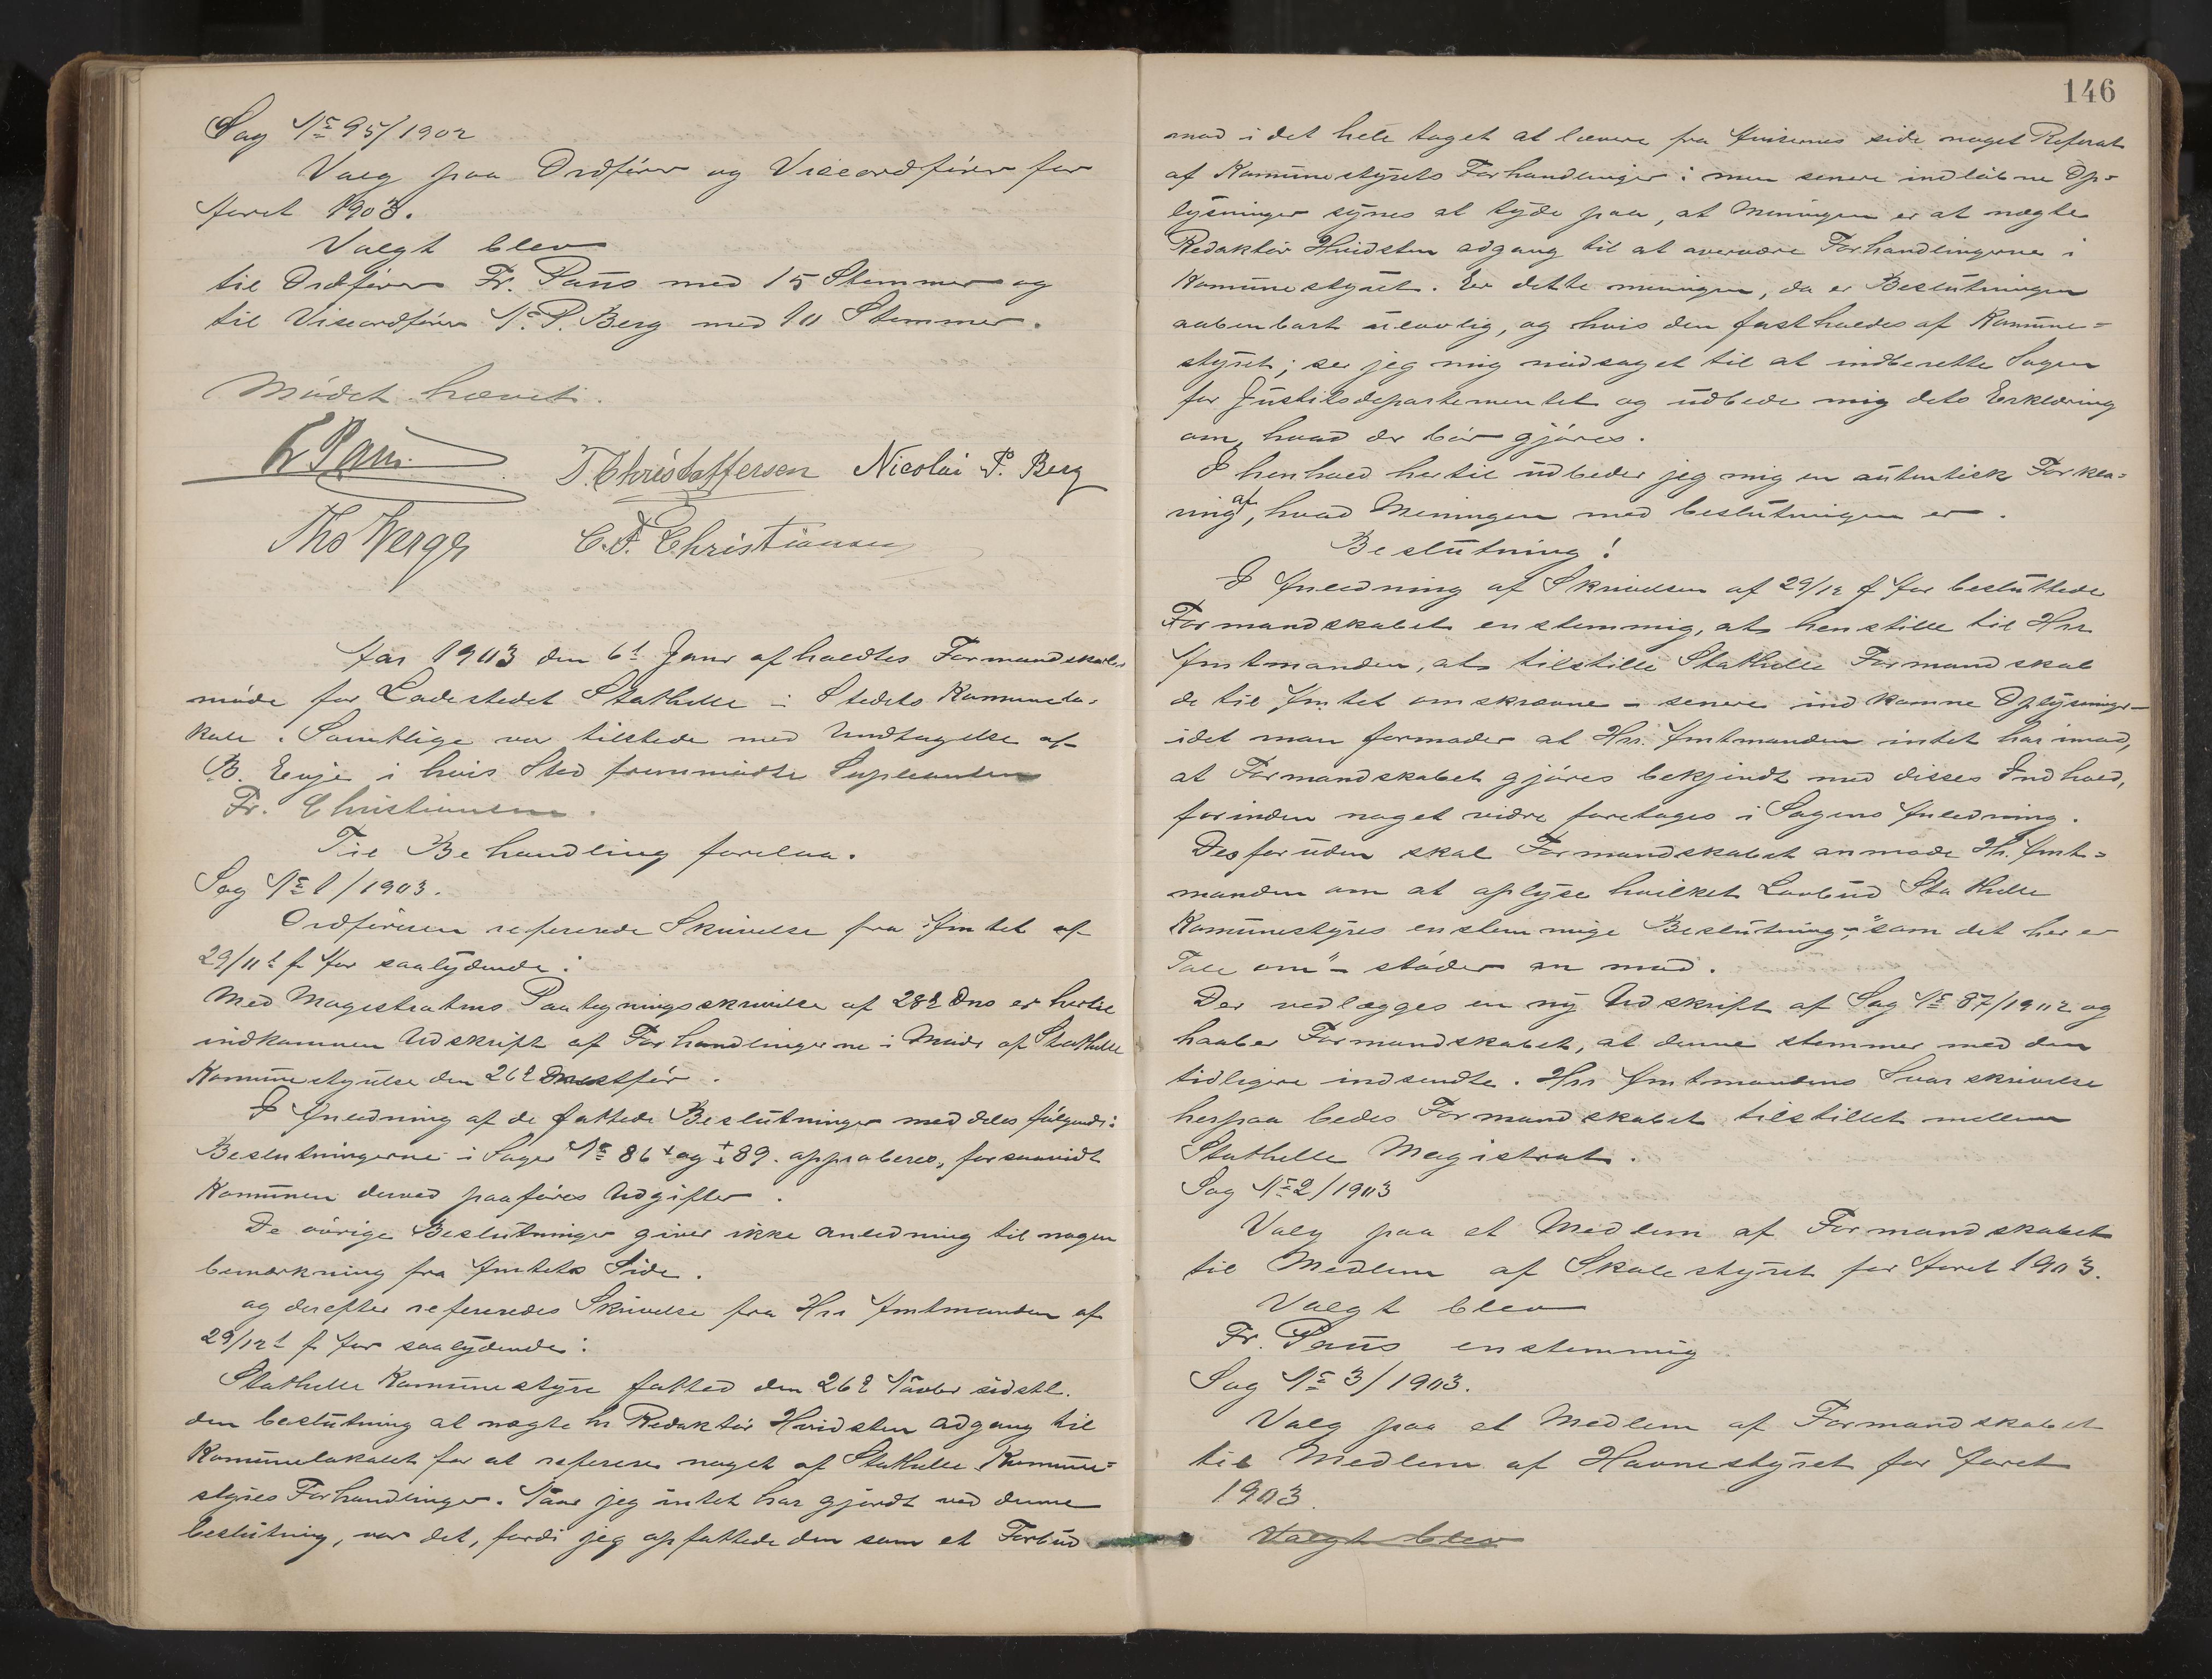 Sag No 95/1902
Valg paa Ordfører og Viseordfører for
Aaret 1903.
Valgt blev
til Ordfører Fr. Paus med 15 Stemmer og
til Viseordfører N. P. Berg med 10 Stemmer.
Mødet hævet.
Fr Paus
T. Christoffersen Nicolai P. Berg
C. F. Christiansen
Aar 1903 den 6t Janr afholdtes Formandskabs
møde for Ladestedet Stathelle i Stedets Kommunelo-
kale. Samtlige var tilstede med Undtagelse af
B. Enje i hvis Sted fremmødte Supleanten
Fr. Christiansen.
Til Behandling forelaa.
Sag No 1/1903.
Ordføreren refererede Skrivelse fra Amtet af
29/11t f Aar saalydende:
Med Magistratens Paategningsskrivelse af 28d Dns er hertil
indkommen Udskrift af Forhandlingerne i Møde af Stathelle
Kommunestyrelse den 26d næstfør.
I Anledning af de fattede Beslutninger meddeles følgende:
Beslutningerne i Sager No 86 og 89. approberes, forsaavidt
Kommunen derved paaføres Udgifter.
De øvrige Beslutninger giver ikke anledning til nogen
bemærkning fra Amtets Side.
og derefter refereredes Skrivelse fra Hrr Amtmanden af
29/12t f Aar saalydende:
Stathelle Kommunestyre fatted den 26d Novbr sidstl.
den beslutning at nægte hr Redaktør Hvidsten adgang til
Kommunelokalet for at referere noget af Stathelle Kommune=
styres Forhandlinger. Naar jeg intet har gjordt ved denne
beslutning, var det, fordi jeg opfattede den som et Forbud
146
mod i det hele taget at levere fra Avisernes side noget Referat
af Kommunestyrets Forhandlinger: men senere indløbne Op=
lysninger synes at tyde paa, at Meningen er at nægte
Redaktør Hvidsten adgang til at overvære Forhandlingerne i
Kommunestyret. Er dette meningen, da er Beslutningen
aabenbart ulovlig, og hvis den fastholdes af Kommune=
styret; ser jeg mig nødsaget til at indberette Sagen
for Justitsdepartementet og udbede mig dets Erklæring
om, hvad der bør gjøres.
I henhold hertil udbeder jeg mig en autentisk Forkla=
ring af, hvad Meningen med beslutningen er.
Beslutning!
I Anledning af Skrivelsen af 29/12 f Aar besluttede
Formandskabet enstemmig, at henstille til Hrr
Amtmanden, at tilstille Stathelle Formandskab
de til Amtet omskrevne - senere indkomne Oplysninger -
idet man formoder at Hrr. Amtmanden intet har imod,
at Formandskabet gjøres bekjendt med disses Indhold,
forinden noget vidre foretages i Sagens Anledning.
Desforuden skal Formandskabet anmode Hr. Amt=
manden om at oplyse hvilket Lovbud Stathelle
Kommunestyres enstemmige Beslutning, "som det her er
Tale om" - støder an mod.
Der vedlægges en ny Udskrift af Sag No 87/1902 og
haaber Formandskabet, at denne stemmer med den
tidligere indsendte. Hrr Amtmandens Svarskrivelse
herpaa bedes Formandskabet tilstillet mellem
Stathelle Magistrat.
Sag No 2/1903
Valg paa et Medlem af Formandskabet
til Medlem af Skolestyret for Aaret 1903.
Valgt blev
Fr. Paus enstemmig
Sag No 3/1903.
Valg paa et Medlem af Formandskabet
til Medlem af Havnestyret for Aaret
1903.
Valgt blev